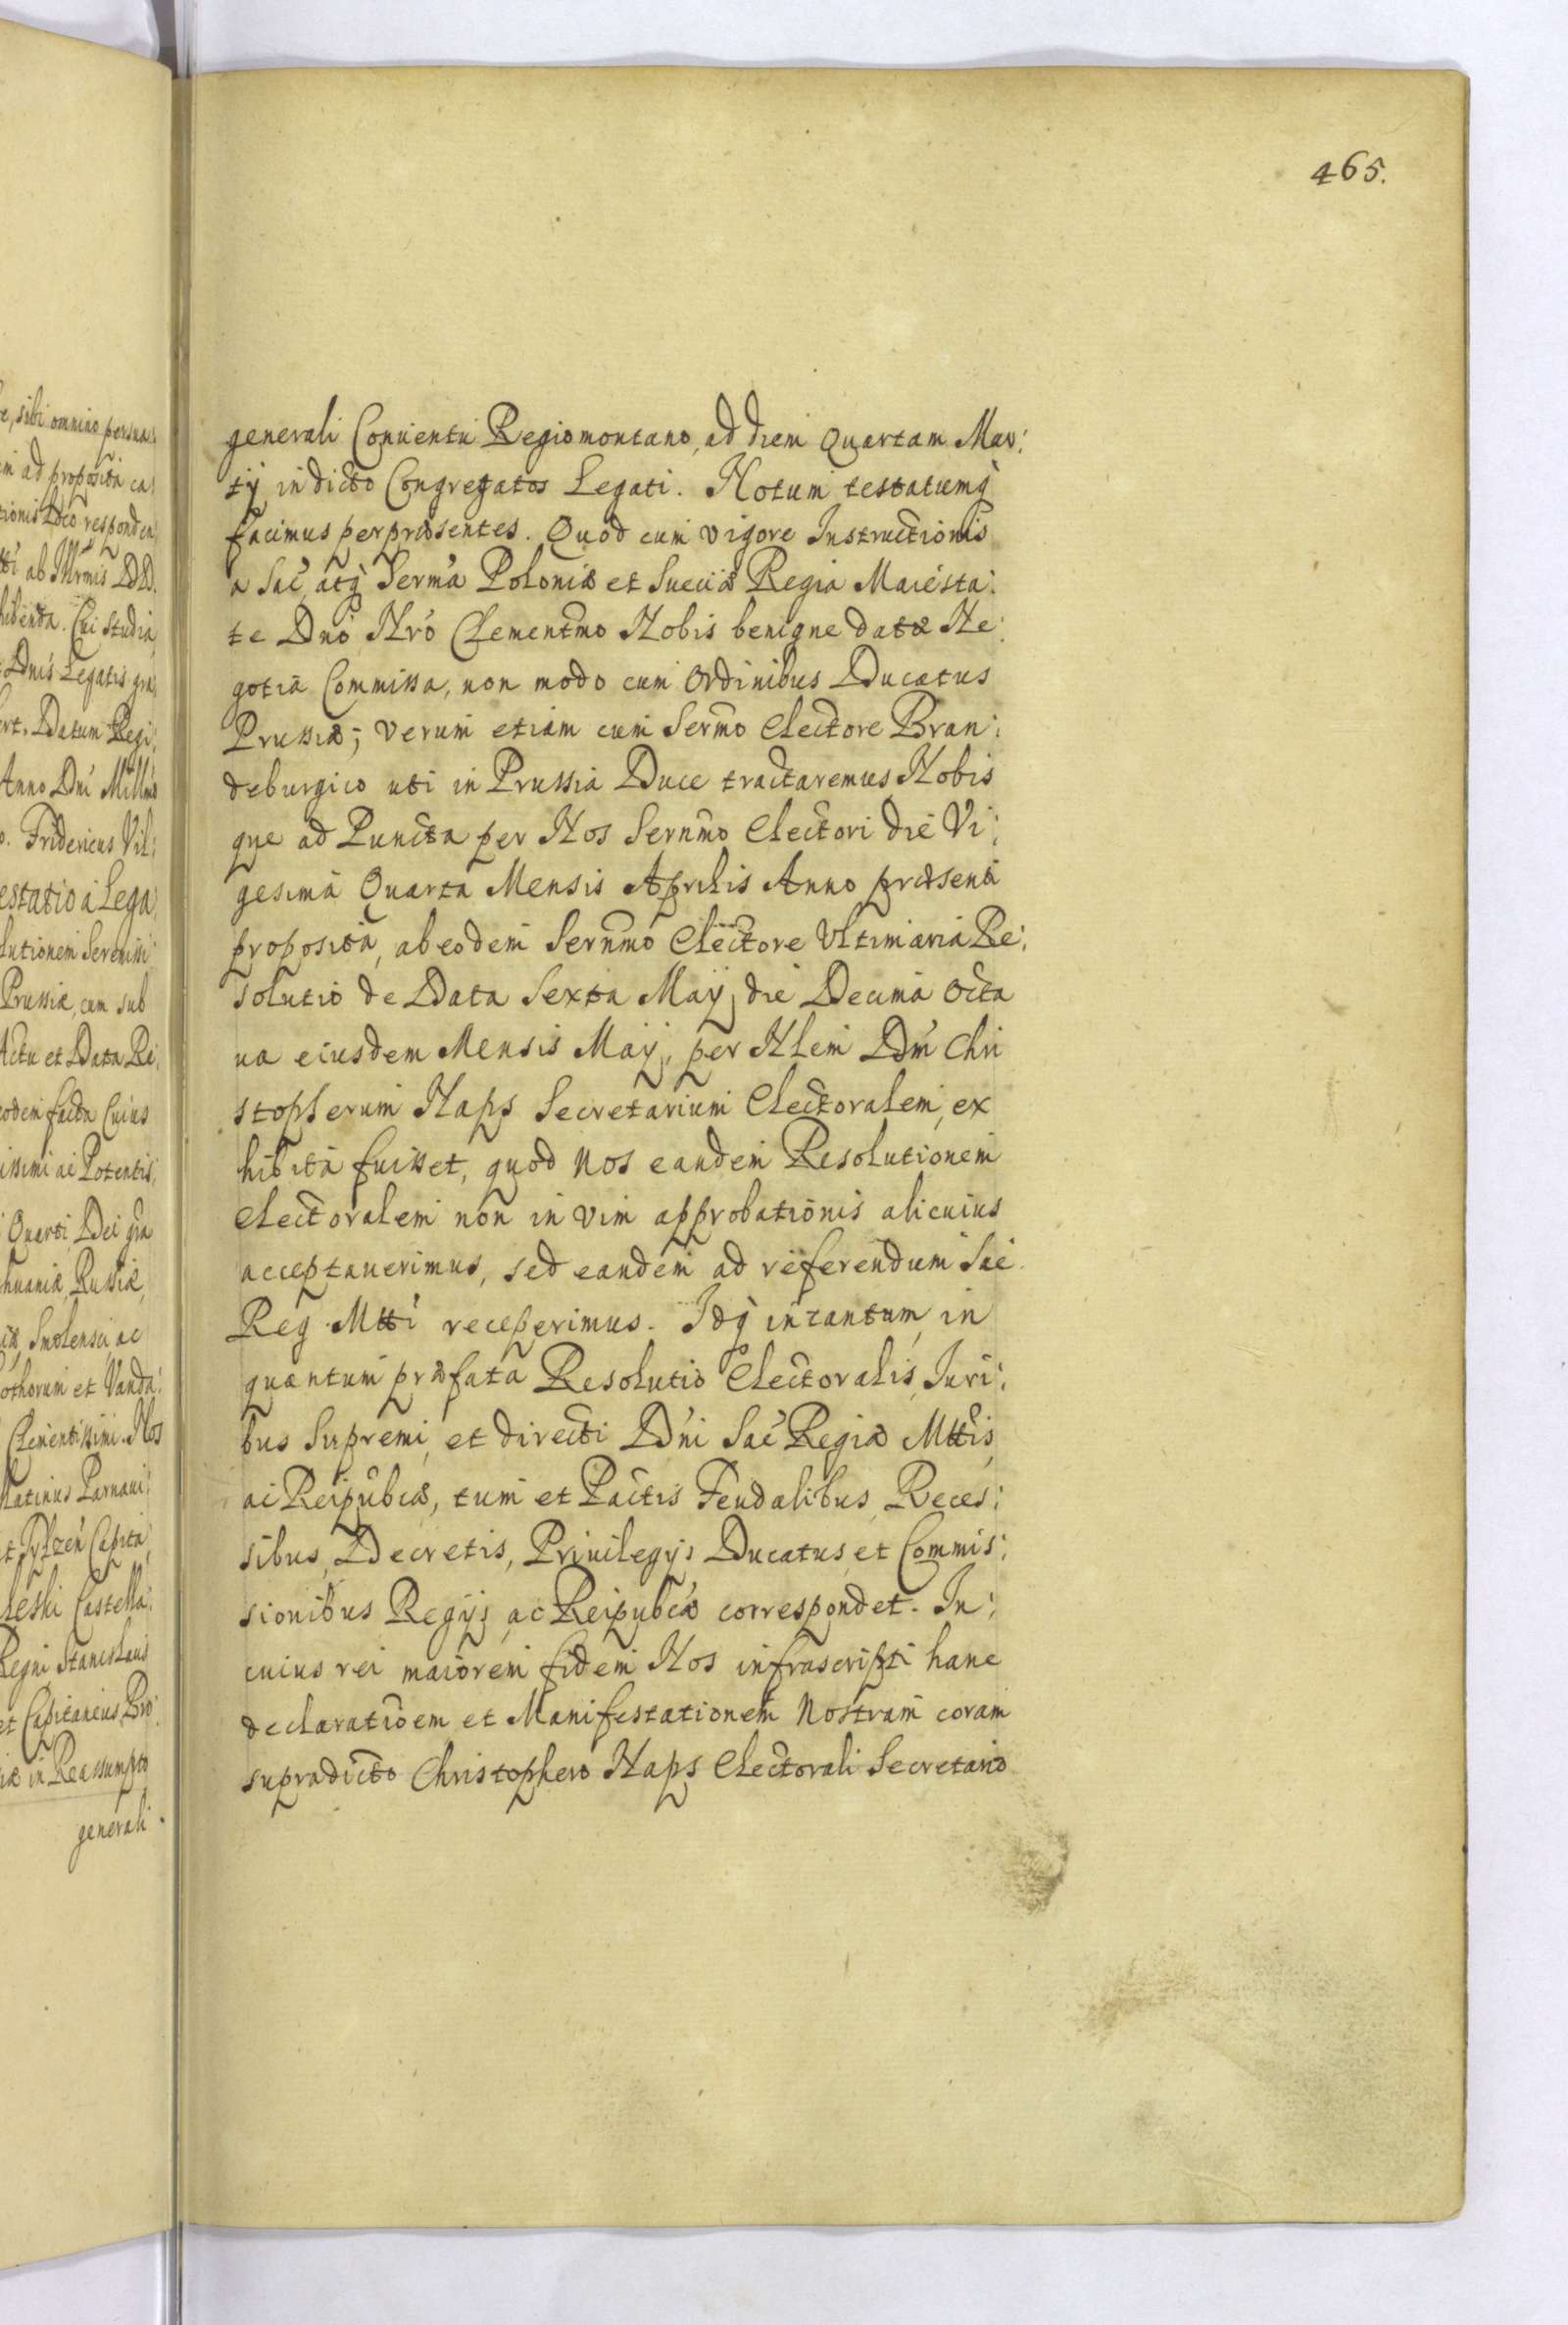 465.
generali Conuentu Regiomontano, ad diem Quartam Mar:
tÿ indicto Congregatos Legati. Notum testatumq̀
facimus per præsentes. Quod cum vigore Instructionis
a Sac̀ atq̀ Serm̃a Poloniæ et Sueciæ Regia Maiesta:
te Dnõ Nrõ Clementm̃o Nobis benigne datæ Ne:
gotia Commissa, non modo cum Ordinibus Ducatus
Prussiæ; verum etiam cum Serm̃o Electore Bran:
deburgico uti in Prussia Duce tractaremus Nobis
que ad Puncta per Nos Sernm̃o Electori die Vi:
gesima Quarta Mensis Aprilis Anno præsenti
proposita, ab eodem Sernm̃o Electore Vltimaria Re:
solutio de Data Sexta Maÿ, die Decima Octa
ua eiusdem Mensis Maÿ, per Nlem Dm̃ Chri
stopherum Naps Secretarium Electoralem, ex
hibita fuisset, quod nos eandem Resolutionem
Electoralem non in vim approbationis alicuius
acceptauerimus, sed eandem ad referendum Sac̀
Reg. Mtti receperimus. Idq̀ intantum, in
quantum præfata Resolutio Electoralis, Iuri:
bus Supremi, et directi Dñi Sac̀ Regiæ Mttis,
ac Reipubcæ, tum et Pactis Feudalibus, Reces:
sibus, Decretis, Priuilegÿs Ducatus, et Commis:
sionibus Regÿs, ac Reipubcæ correspondet. In:
cuius rei maiorem fidem Nos infrascripti hanc
declaratioem et Manifestationem Nostram coram
supradicto Christophero Naps Electorali Secretario
e, sibi omnino persua
m ad proposita ca
tionis Loco responden
tti ab Illrmis DD.
hibenda. Cui studia
Dnis Legatis gra
ert. Datum Regi:
Anno Dni Millmo
o. Fridericus Vil:
estatio a Lega
lutionem Serenissi
Prussiæ, cum sub
Actu et Data Re:
eodem facta Cuius
issimi ac Potentis:
Quarti Dei gra
huaniæ, Russiæ,
iæ, Smolensci, ac
othorum et Vanda:
Clementissimi. Nos
latinus Parnaui:
et Tÿlzen Capita
leski Castella:
Regni Stanislaus
et Capitaneus Bro:
iæ in Reassumpto
generali